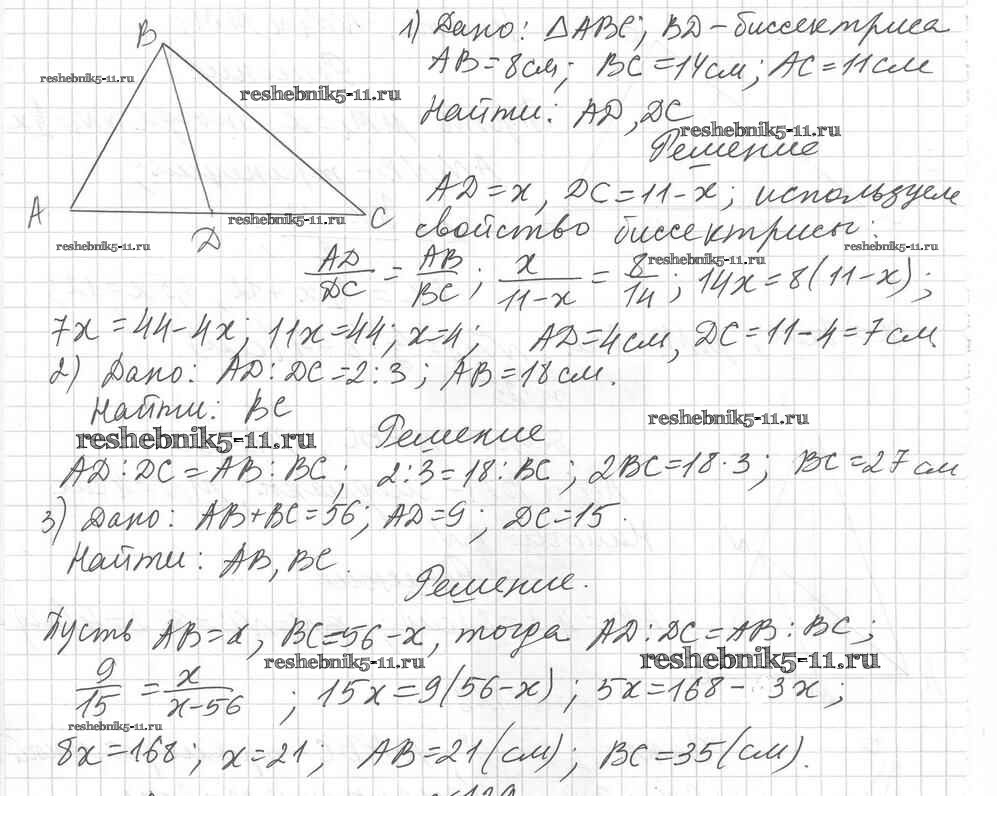 B
1) Дано: △ABC; BD – биссектриса
AB = 8см; BC = 14см; AC = 11см
reshebnik5-11.ru
reshebnik5-11.ru
Найти: AD, DC
reshebnik5-11.ru
Решение
AD = x, DC = 11 - x; используем
A
D
C
reshebnik5-11.ru
свойство биссектрисы:
reshebnik5-11.ru
reshebnik5-11.ru
reshebnik5-11.ru
AD/DC = AB/BC; x/11-x = 8/14; 14x = 8(11-x);
7x = 44 - 4x; 11x = 44; x = 4; AD = 4см, DC = 11 - 4 = 7 см
2) Дано: AD : DC = 2 : 3; AB = 18 см.
Найти: BC
reshebnik5-11.ru
reshebnik5-11.ru
Решение
AD : DC = AB : BC; 2 : 3 = 18 : BC; 2BC = 18 · 3; BC = 27 см
3) Дано: AB + BC = 56; AD = 9; DC = 15.
Найти: AB, BC.
Решение.
Пусть AB = x, BC = 56 - x, тогда AD : DC = AB : BC;
reshebnik5-11.ru
reshebnik5-11.ru
9/15 = x/x-56; 15x = 9(56-x); 5x = 168 - 3x;
reshebnik5-11.ru
8x = 168; x = 21; AB = 21 (см); BC = 35 (см).